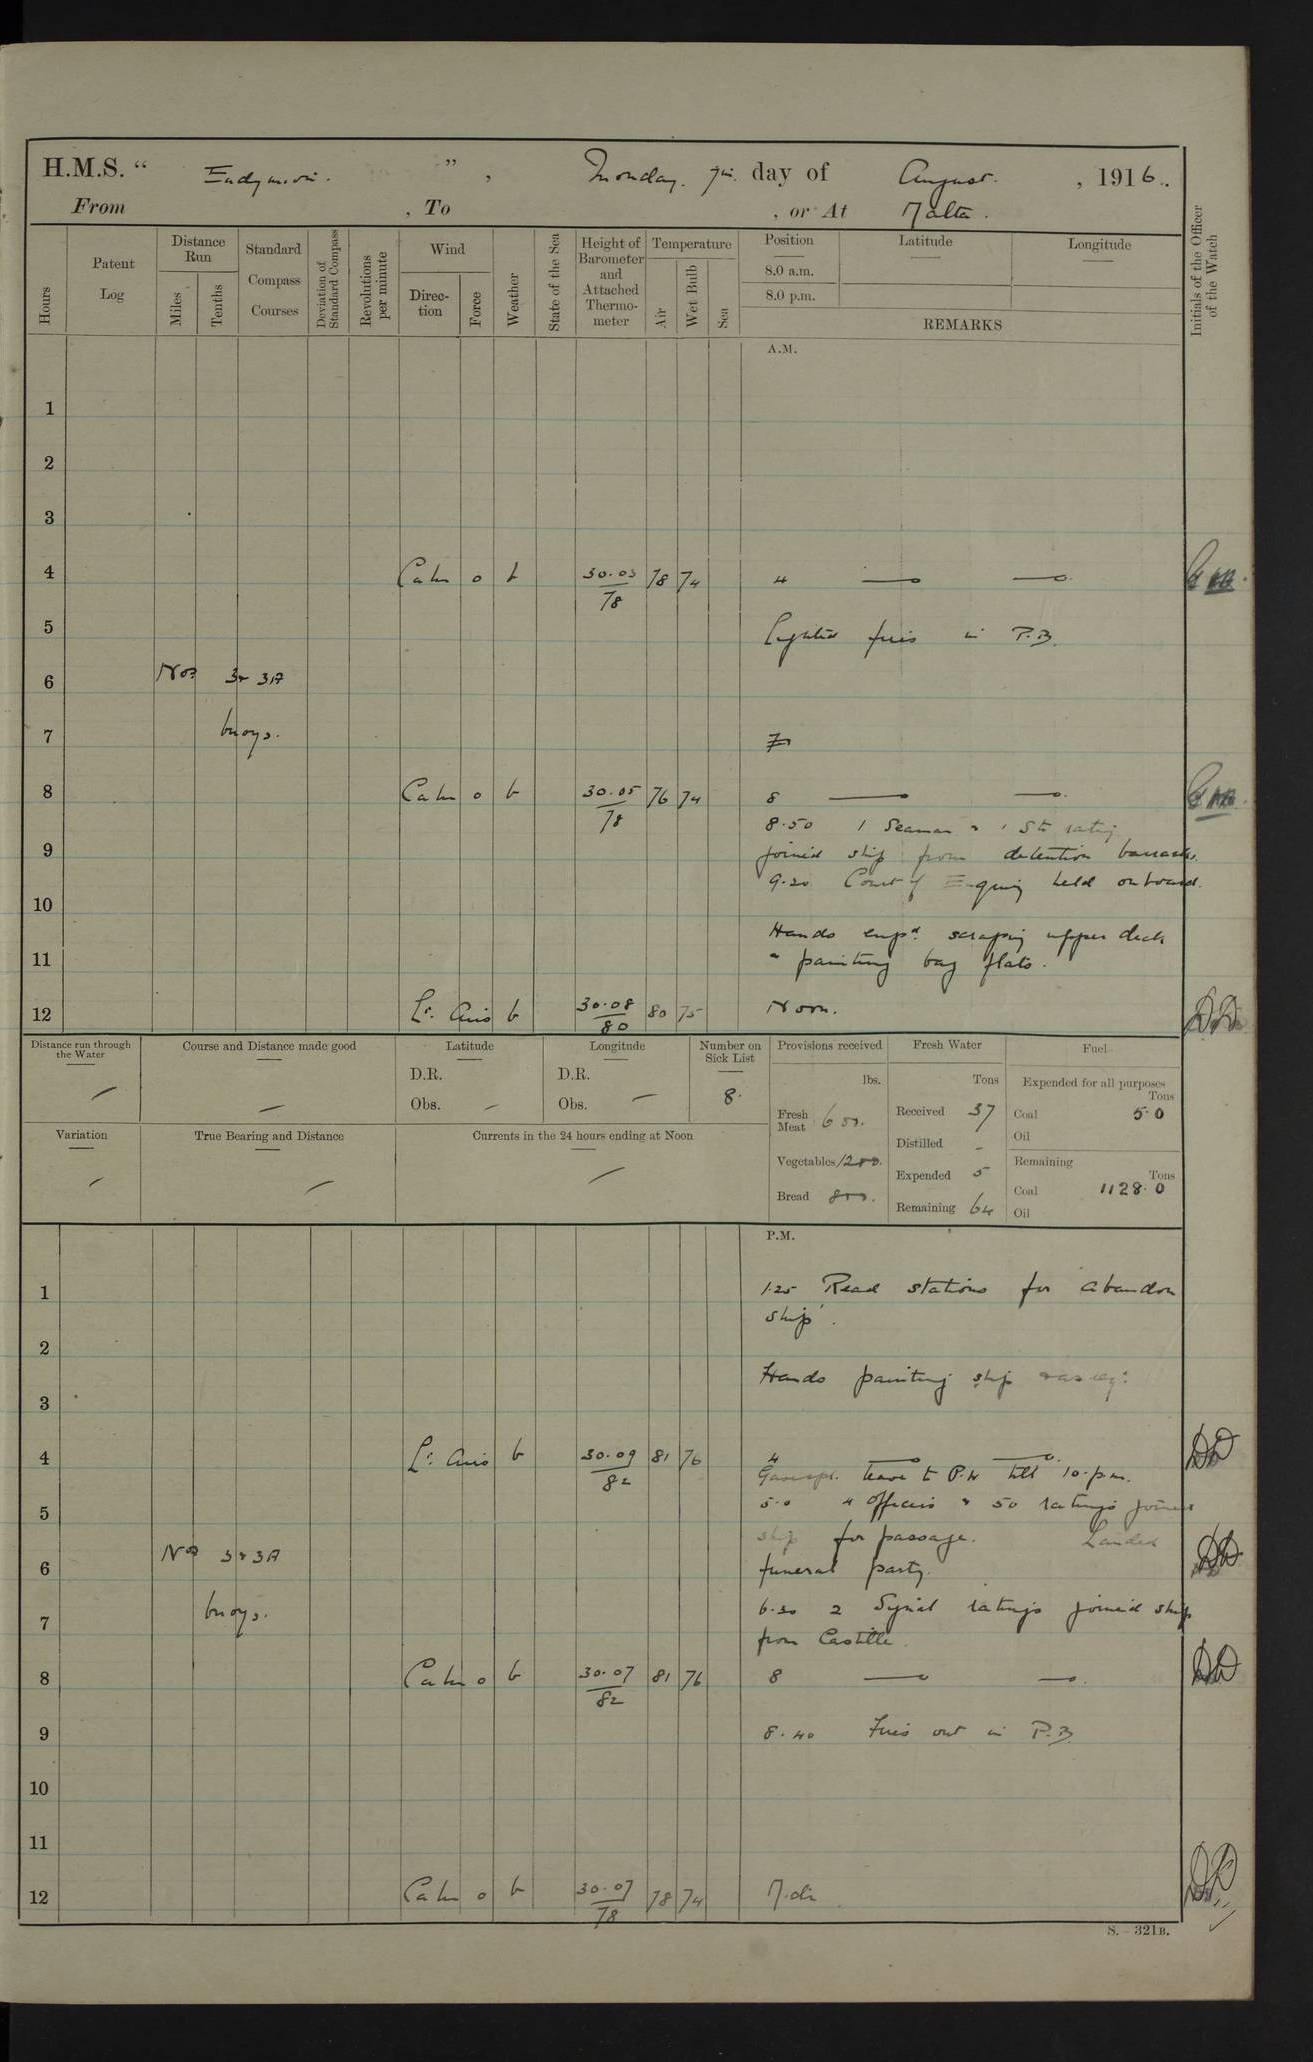 H.M.S. “ Endymion. ” , Monday. 7th. day of August. , 1916.
From , To , or At Malta.
Hours
Patent Log
Distance Run
Miles
Tenths
Standard Compass Courses
Deviation of Standard Compass
Revolutions per minute
Wind
Direc-tion
Force
Weather
State of the Sea
Height of Barometer and Attached Thermo-meter
Temperature
Air
Wet Bulb
Sea
Position
8.0 a.m.
8.0 p.m.
Latitude
Longitude
REMARKS
Initials of the Officer of the Watch
A.M.
1
2
3
4 Calm 0 b 30.03/78 78 74 4
5 Lighted fires in P.B.
6 Nos 3 & 3A
7 buoys.
8 Calm 0 b 30.05/78 76 74 8
8.50 1 Seaman & 1 Sto rating
9 joined ship from detention barracks.
9.20 Court of Enquiry held onboard.
10
Hands empd. scraping upper deck
11 & painting bag flats.
12 Lt. airs b 30.08/80 80 75 Noon.
Distance run through the Water
Course and Distance made good
Latitude
D.R.
Obs.
Longitude
D.R.
Obs.
Number on Sick List
8.
Provisions received
lbs.
Fresh Meat 600.
Vegetables 1200.
Bread 800.
Fresh Water
Tons
Received 37
Distilled -
Expended 5
Remaining 64
Fuel
Expended for all purposes
Tons
Coal 5.0
Oil
Remaining
Tons
Coal 1128.0
Oil
Variation
True Bearing and Distance
Currents in the 24 hours ending at Noon
P.M.
1 1.25 Read stations for abandon
ship'.
2
Hands painting ship
3
4 Lt. airs b 30.09/82 81 76 4
leave to P.W till 10.p.m.
5 5.0 4 officers & 50 ratings joined
ship for passage. Landed
6 Nos 3 & 3A funeral party.
7 buoys. 6.30 2 Signal ratings joined ship
from Castille.
8 Calm 0 b 30.07/82 81 76 8
9 8.40 Fires out in P.B.
10
11
12 Calm 0 b 30.07/78 78 74 Mdt
S.—321B.